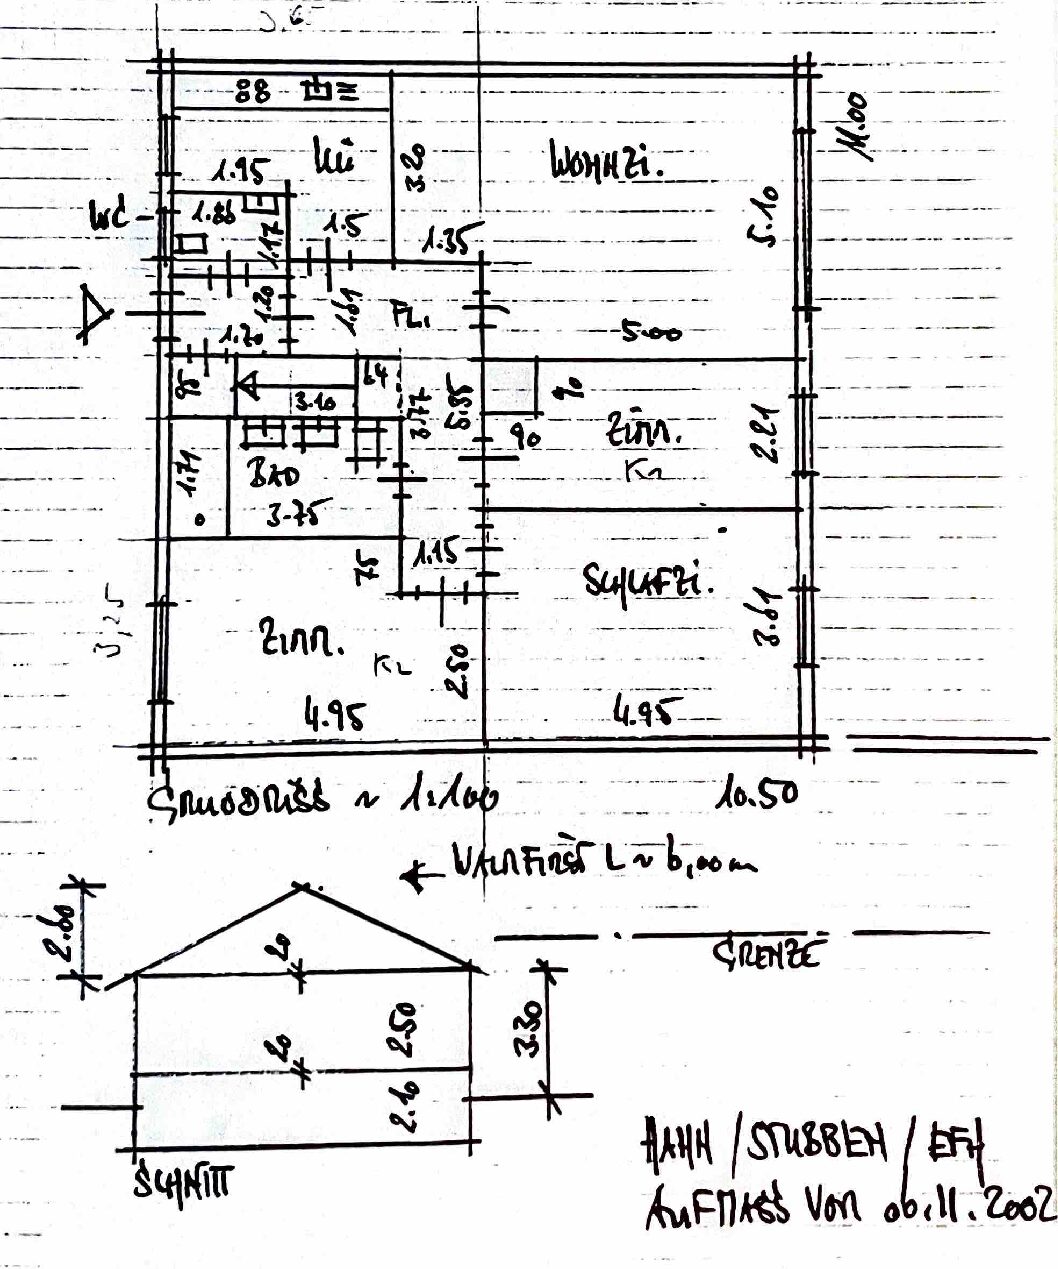 3,65
88
Kü
3.20
WOHNZi.
11.00
1.95
WC
1.86
1.17
1.5
1.35
5.10
1.20
1.61
FL.
1.20
5.00
95
64
3.10
3.77
5.85
90
90
Zimm.
K1
2.21
1.71
BAD
3.75
75
1.15
SCHLAFZi.
3.61
3,25
Zimm.
K2
2.50
4.95
4.95
GRUNDRISS ~ 1:100
10.50
← WALMFIRST L ~ 6,00 m
2.60
20
GRENZE
20
2.50
3.30
2.10
SCHNITT
HAHN / STUBBEN / EFH
AUFMASS VOM 06.11.2002